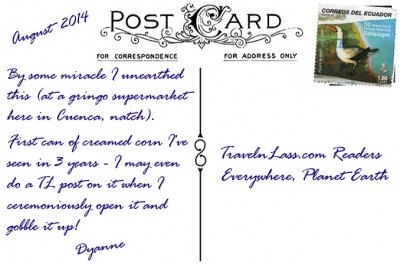 August 2014
POST CARD
FOR CORRESPONDENCE
FOR ADDRESS ONLY
CORREOS DEL ECUADOR
Galápagos
By some miracle I unearthed
this (at a gringo supermarket
here in Cuenca, natch).
First can of creamed corn I've
seen in 3 years - I may even
do a TL post on it when I
ceremoniously open it and
gobble it up!
Dyanne
TravelnLass.com Readers
Everywhere, Planet Earth